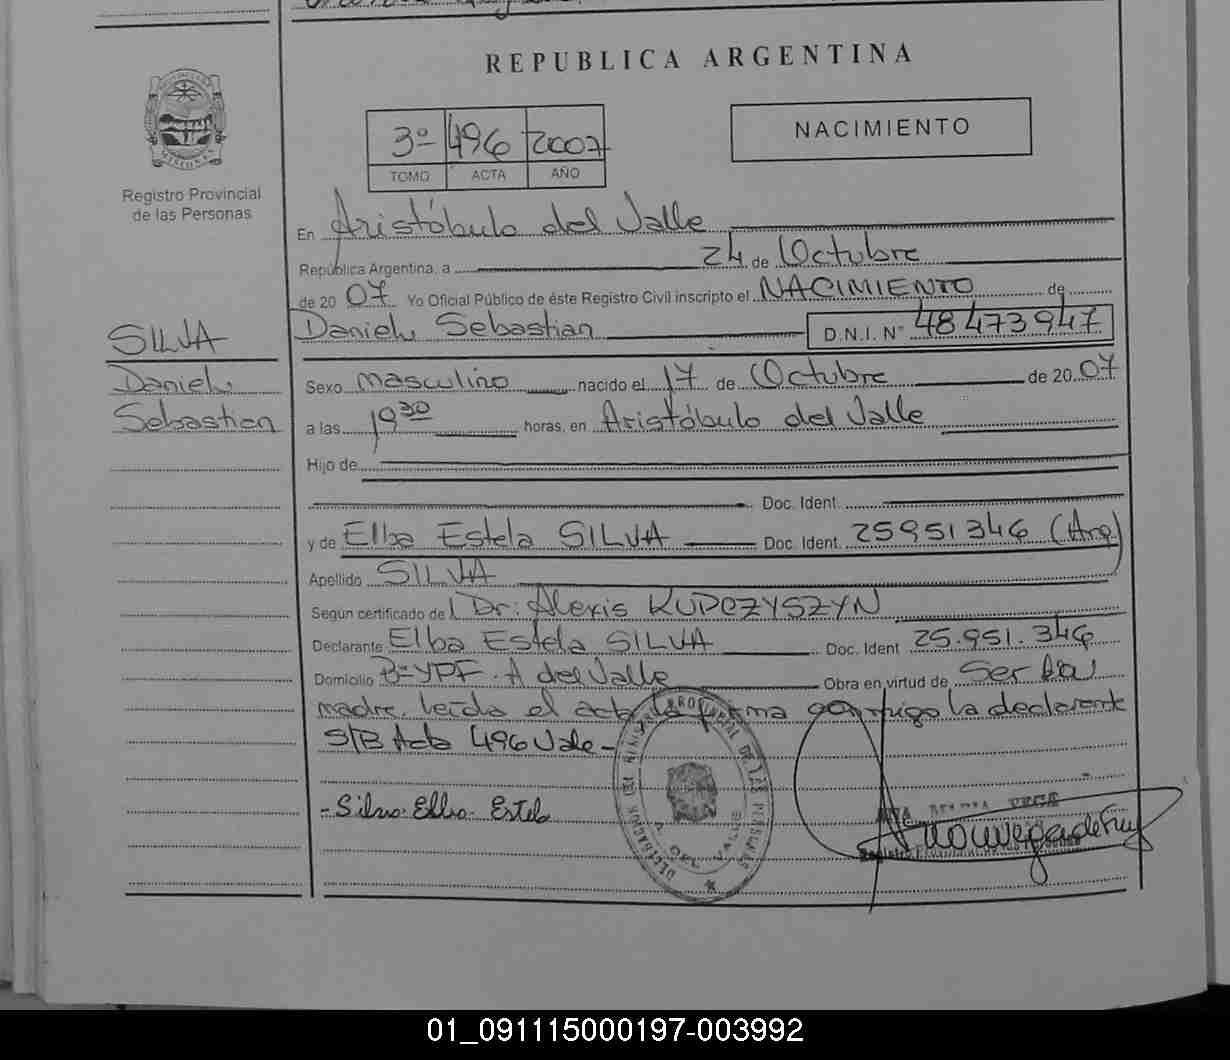 REPUBLICA ARGENTINA
3º 496 2007
TOMO ACTA AÑO
NACIMIENTO
MISIONES
Registro Provincial
de las Personas
SILVA
Daniel
Sebastian
En Aristóbulo del Valle
República Argentina, a 24 de Octubre
de 20 07 Yo Oficial Público de éste Registro Civil inscripto el NACIMIENTO de
Daniel Sebastian D.N.I. Nº 48473947
Sexo masculino nacido el 17 de Octubre de 20 07
a las 19 30 horas, en Aristóbulo del Valle
Hijo de
Doc. Ident.
y de Elba Estela SILVA Doc. Ident. 25951346 (Arg)
Apellido SILVA
Según certificado del Dr: Alexis KUPCZYSZYN
Declarante Elba Estela SILVA Doc. Ident 25.951.346
Domicilio Bº YPF. A del Valle Obra en virtud de Ser la
madre. leída el acta la firma conmigo la declarante
S/B Acta 496 Vale-
-Silva Elba Estela
DE LAS PERSONAS
A. DEL VALLE
VEGA
01_091115000197-003992